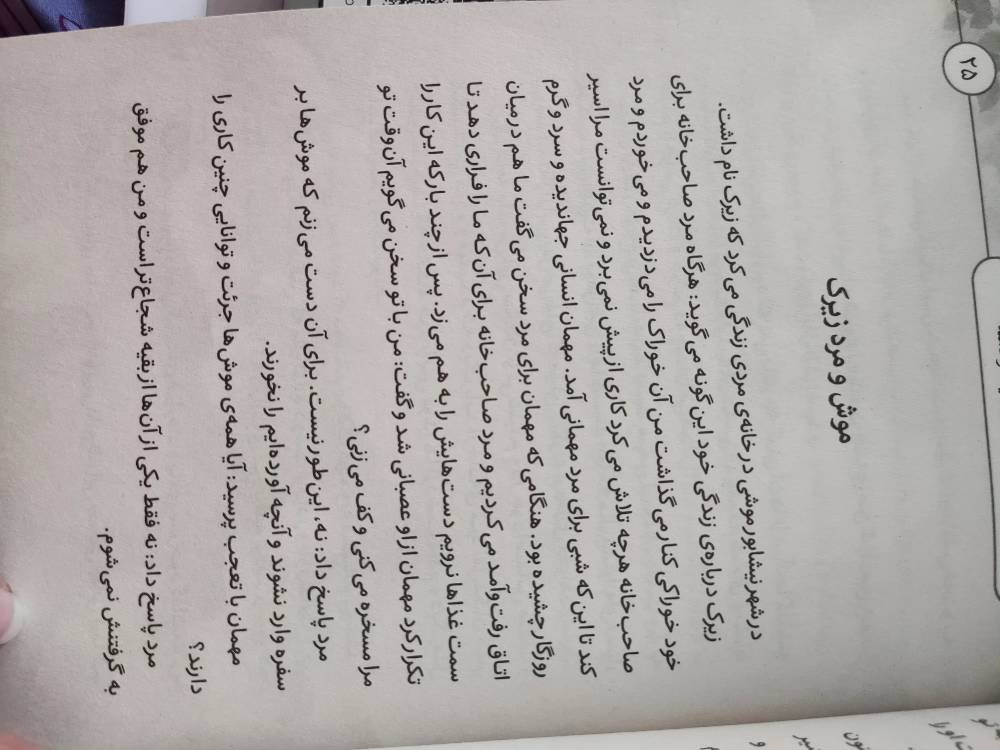 ۲۵
موش و مرد زیرک
در شهر نیشابور موشی در خانه‌ی مردی زندگی می کرد که زیرک نام داشت.
زیرک درباره‌ی زندگی خود این گونه می گوید: هرگاه مرد صاحب خانه برای
خود خوراکی کنار می گذاشت من آن خوراک را می دزدیدم و می خوردم و مرد
صاحب خانه هرچه تلاش می کرد کاری از پیش نمی برد و نمی توانست مرا اسیر
کند تا این که شبی برای مرد مهمانی آمد. مهمان انسانی جهاندیده و سرد و گرم
روزگار چشیده بود. هنگامی که مهمان برای مرد سخن می گفت ما هم در میان
اتاق رفت و آمد می کردیم و مرد صاحب خانه برای آن که ما را فراری دهد تا
سمت غذاها نرویم دست هایش را به هم می زد. پس از چند بار که این کار را
تکرار کرد مهمان از او عصبانی شد و گفت: من با تو سخن می گویم آن وقت تو
مرا مسخره می کنی و کف می زنی؟
مرد پاسخ داد: نه، این طور نیست. برای آن دست می زنم که موش ها بر
سفره وارد نشوند و آنچه آورده ایم را نخورند.
مهمان با تعجب پرسید: آیا همه‌ی موش ها جرئت و توانایی چنین کاری را
دارند؟
مرد پاسخ داد: نه فقط یکی از آن ها از بقیه شجاع تر است و من هم موفق
به گرفتنش نمی شوم.